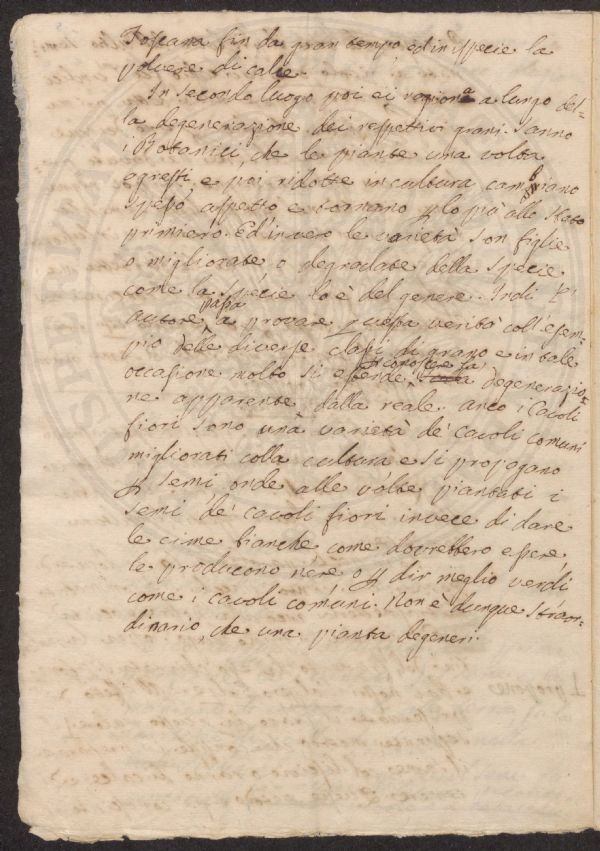 Toscana fin da gran tempo, ed in ispecie la
polvere di calce.
In secondo luogo poi ei ragiona a lungo del=
la degenerazione dei respettivi grani. Sanno
i Botanici, che le piante una volta
agresti, e poi ridotte in cultura cambiano
spesso aspetto e tornano p lo più allo stato
primiero. Ed in vero le varietà son figlie
o migliorate o degradate della specie
come la specie lo è del genere. Indi l'
autore passa a provare questa verità coll'esem=
pio delle diverse classi di grano e in tale
occasione molto si estende a conoscere la degenerazio=
ne apparente dalla reale. anco i Cavoli
fiori sono una varietà de' cavoli comuni
migliorati colla cultura e si propagano
p semi onde alle volte piantati i
semi de' cavoli fiori invece di dare
le cime bianche come dovrebbero essere,
le producono nere o p dir meglio verdi
come i cavoli comuni. Non è dunque straor=
dinario, che una pianta degeneri.